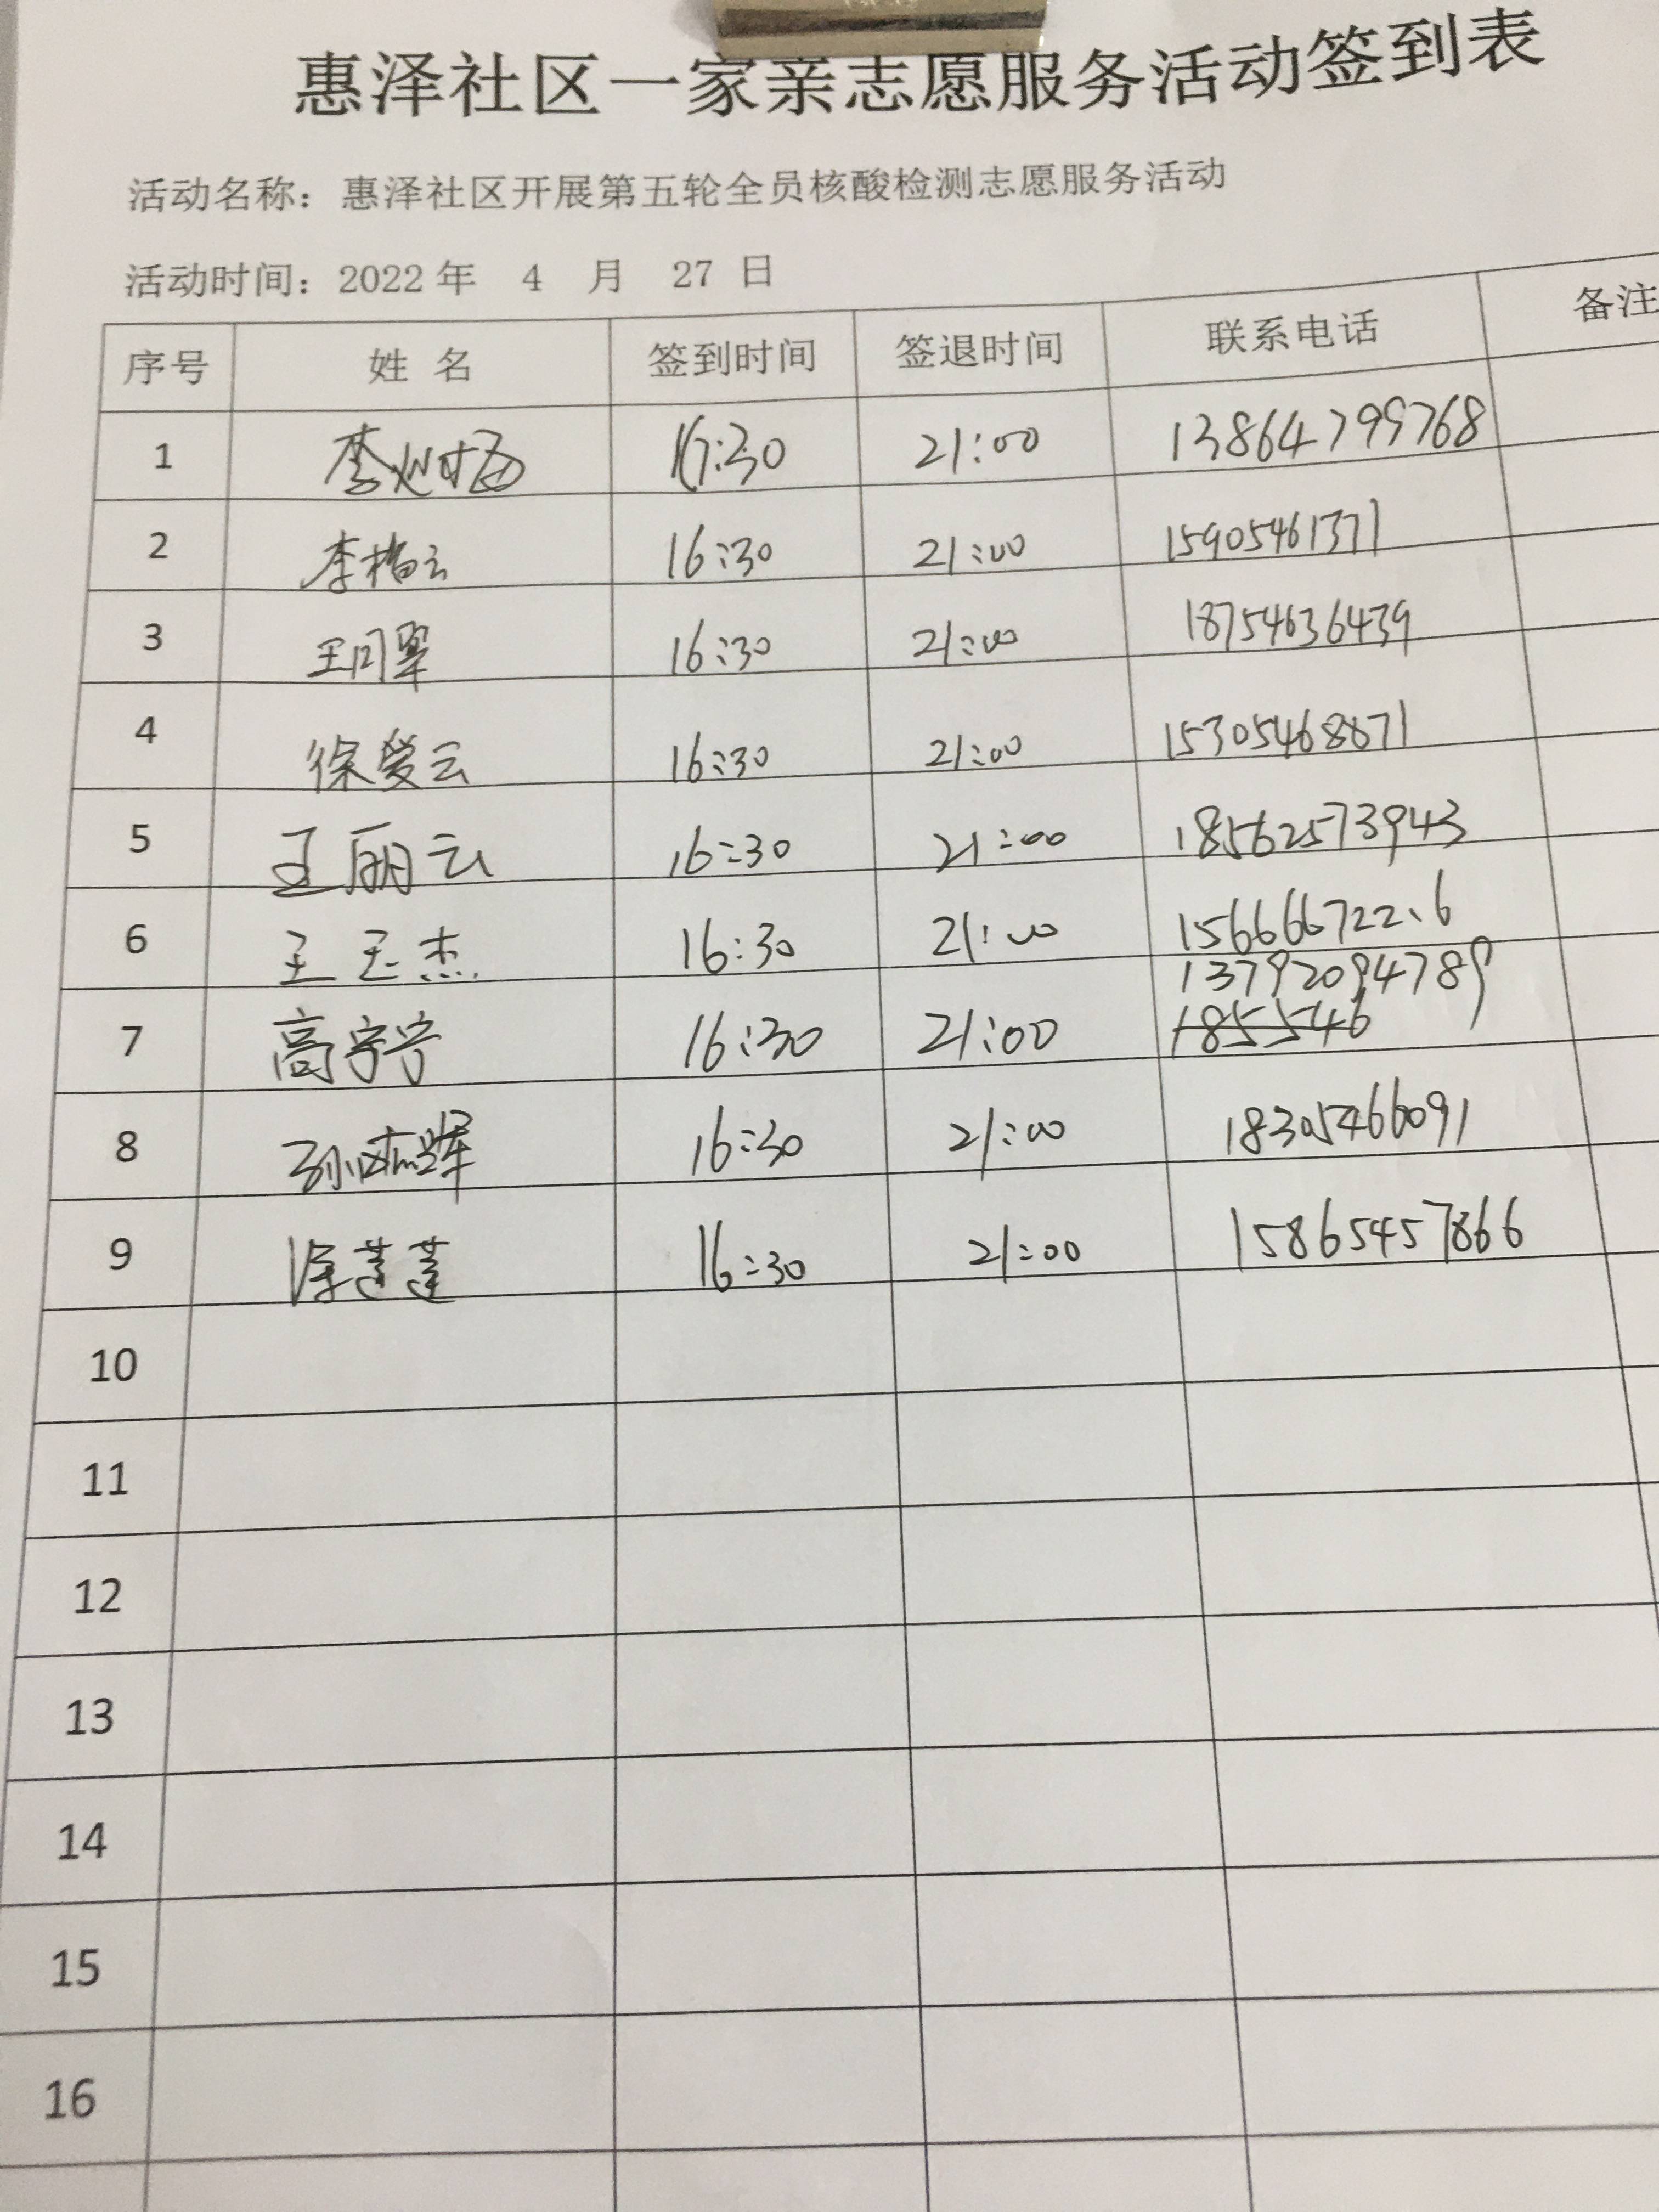 惠泽社区一家亲志愿服务活动签到表
活动名称：惠泽社区开展第五轮全员核酸检测志愿服务活动
活动时间：2022 年 4 月 27 日
序号 姓 名 签到时间 签退时间 联系电话 备注
1 李 :30 21:00 13864799768
2 李 云 16:30 21:00 15905461371
3 王 翠 16:30 21:00 18754636439
4 徐爱云 16:30 21:00
5 王丽云 16:30 21:00 18562573943
6 王玉杰 16:30 21:00 15666672216
13792094789
7 高 16:30 21:00 185546
8 孙 辉 16:30 21:00 18305466091
9 莲莲 16:30 21:00 15865457866
10
11
12
13
14
15
16